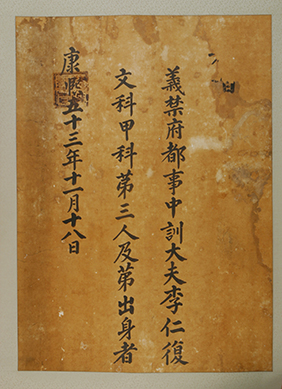 義禁府都事中訓大夫李仁復
文科甲科第三人及第出身者
康熙五十三年十一月十八日